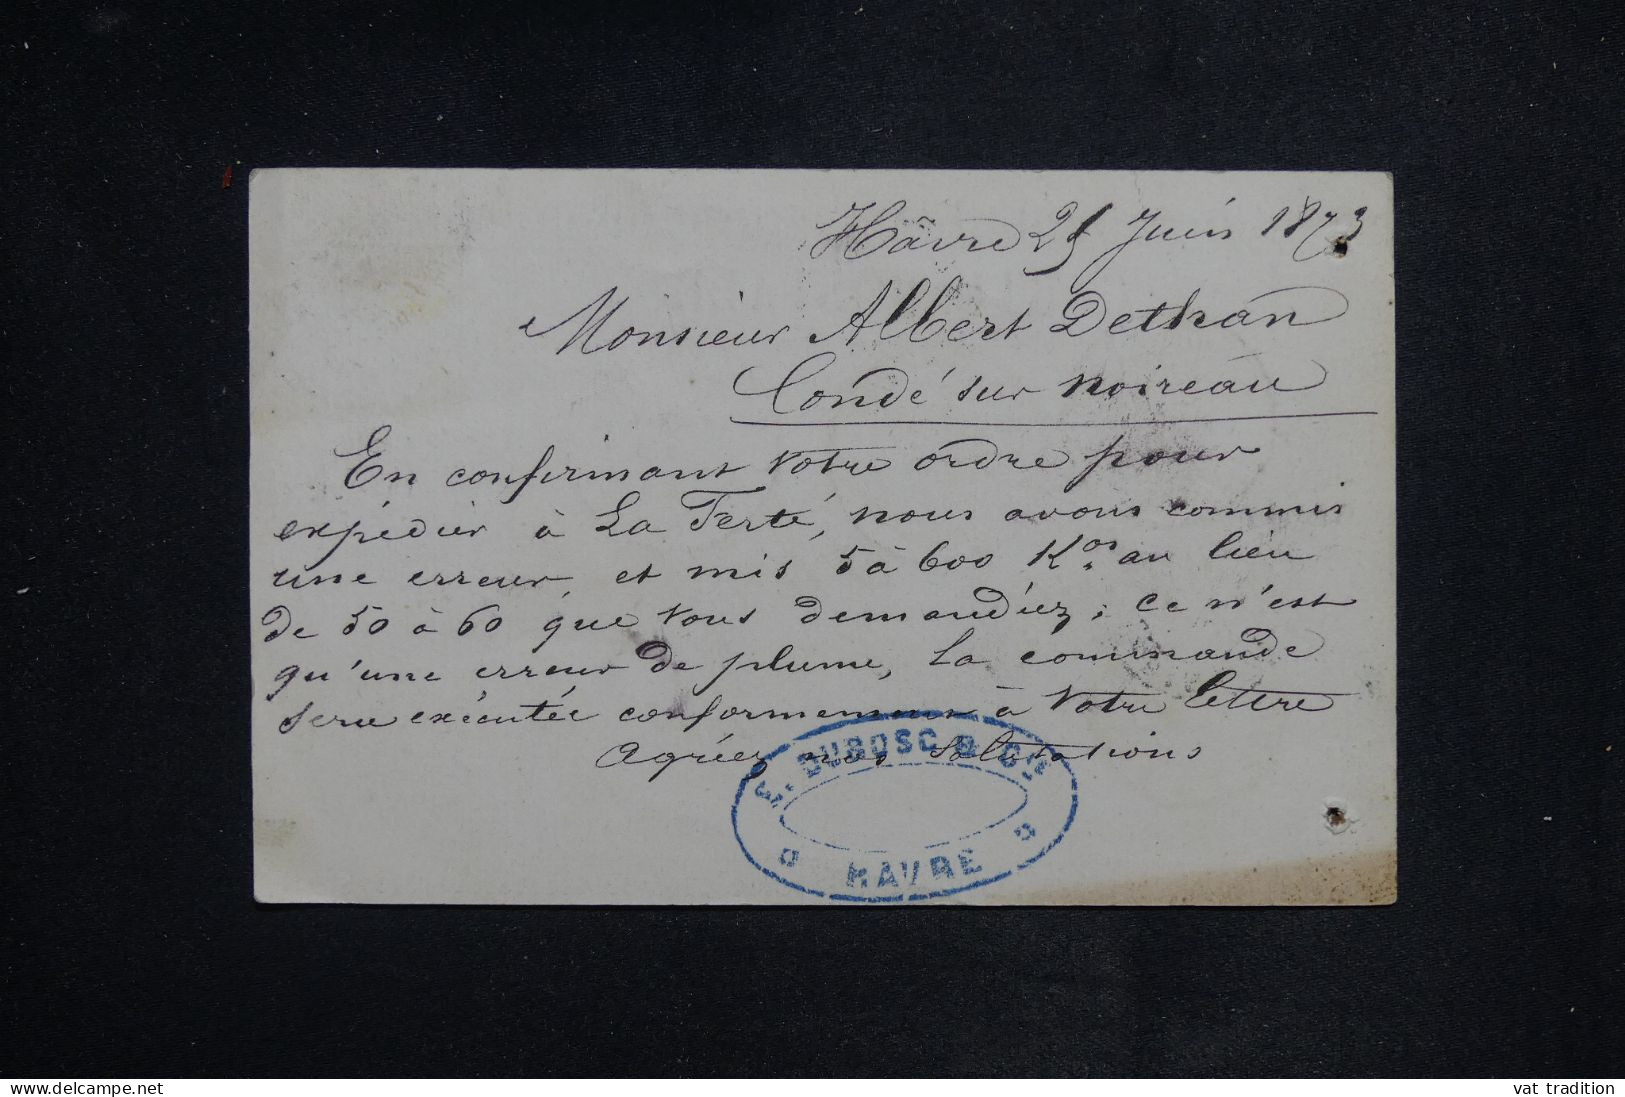 Hâvre 25 Juin 1873
Monsieur Albert Dethan
Condé sur Noireau
En confirmant votre ordre pour
expédier à La Ferté, nous avons commis
une erreur, et mis 5 à 600 Kos au lieu
de 50 à 60 que vous demandiez; ce n'est
qu'une erreur de plume, la commande
sera exécutée conformément à votre lettre
Agréez nos Salutations
E. DUBOSC & CIE
HAVRE
www.delcampe.net
vat tradition